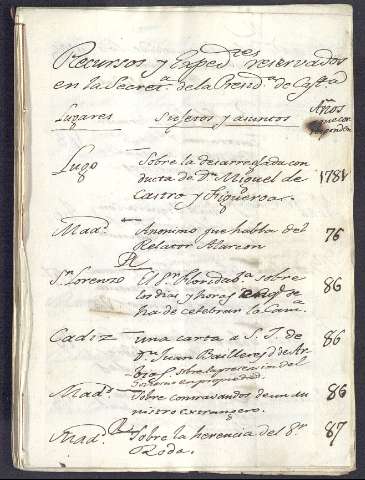 Recursos y Exped.tes reservados
en la Secret.a de la Presid.a de Cast.a
Lugares Sujetos y asuntos Años
que con
responden
Lugo Sobre la desarreglada con
ducta de D.n Miguel de 1781
Castro y Figueroa.
Mad.d Anonimo que habla del 76
Relator Alarcon
S.n Lorenzo El S.r Floridab.ca sobre 86
los dias y horas en q.e se
ha de celebrar la Cam.a
Cadiz una carta a S. I. de 86
D.n Juan
sobre la prision del
en propiedad
Mad.d Sobre contravandos de un mi 86
nistro extrangero.
Mad.d Sobre la herencia del S.r 87
Roda.